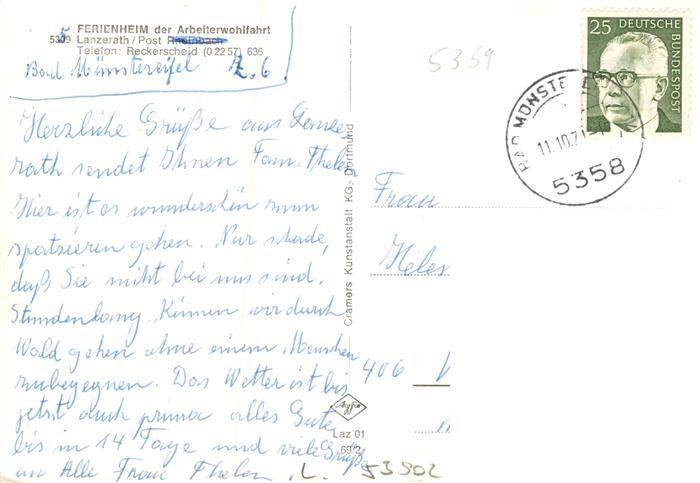 FERIENHEIM der Arbeiterwohlfahrt
Lanzerath / Post Rheinbach
Telefon: Reckerscheid (0 22 57) 636
Bad Münstereifel Z. 6.
Herzliche Grüße aus Lanze
rath sendet Ihnen Fam. Thelen
Hier ist es wunderschön zum
spatzieren gehen. Nur schade,
daß Sie nicht bei uns sind.
Stundenlang können wir durch
Wald gehen ohne einem Menschen
zubegegnen. Das Wetter ist bis
jetzt auch prima alles Gute
bis in 14 Tage und viele Grüße
an Alle Frau Thelen
L. 53902
Cramers Kunstanstalt KG, Dortmund
Laz 01
69/2
5359
25 DEUTSCHE BUNDESPOST
BAD MÜNSTEREIFEL
11.10.71
5358
Frau
Helen
406